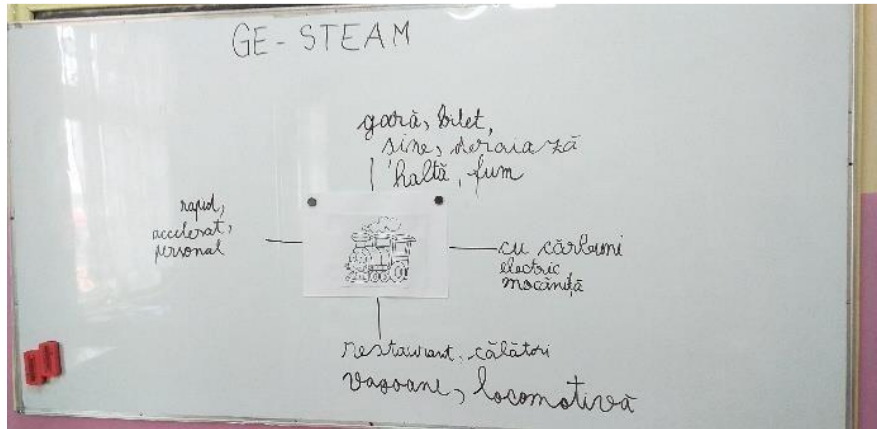 GE - STEAM
gară, bilet,
șine, deraiază
haltă, fum
rapid,
accelerat,
personal
cu cărbuni
electric
mocăniță
restaurant, călători
vagoane, locomotivă